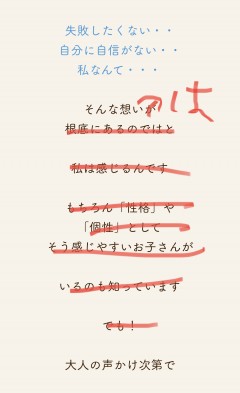 失敗したくない・・
自分に自信がない・・
私なんて・・・
そんな想いが
のは
根底にあるのではと
私は感じるんです
もちろん「性格」や
「個性」として
そう感じやすいお子さんが
いるのも知っています
でも！
大人の声かけ次第で